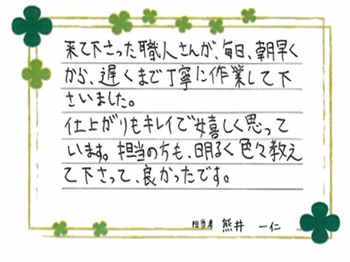 来て下さった職人さんが、毎日、朝早く
から、遅くまで丁寧に作業して下
さいました。
仕上がりもキレイで嬉しく思って
います。担当の方も、明るく色々教え
て下さって、良かったです。
担当者 熊井 一仁